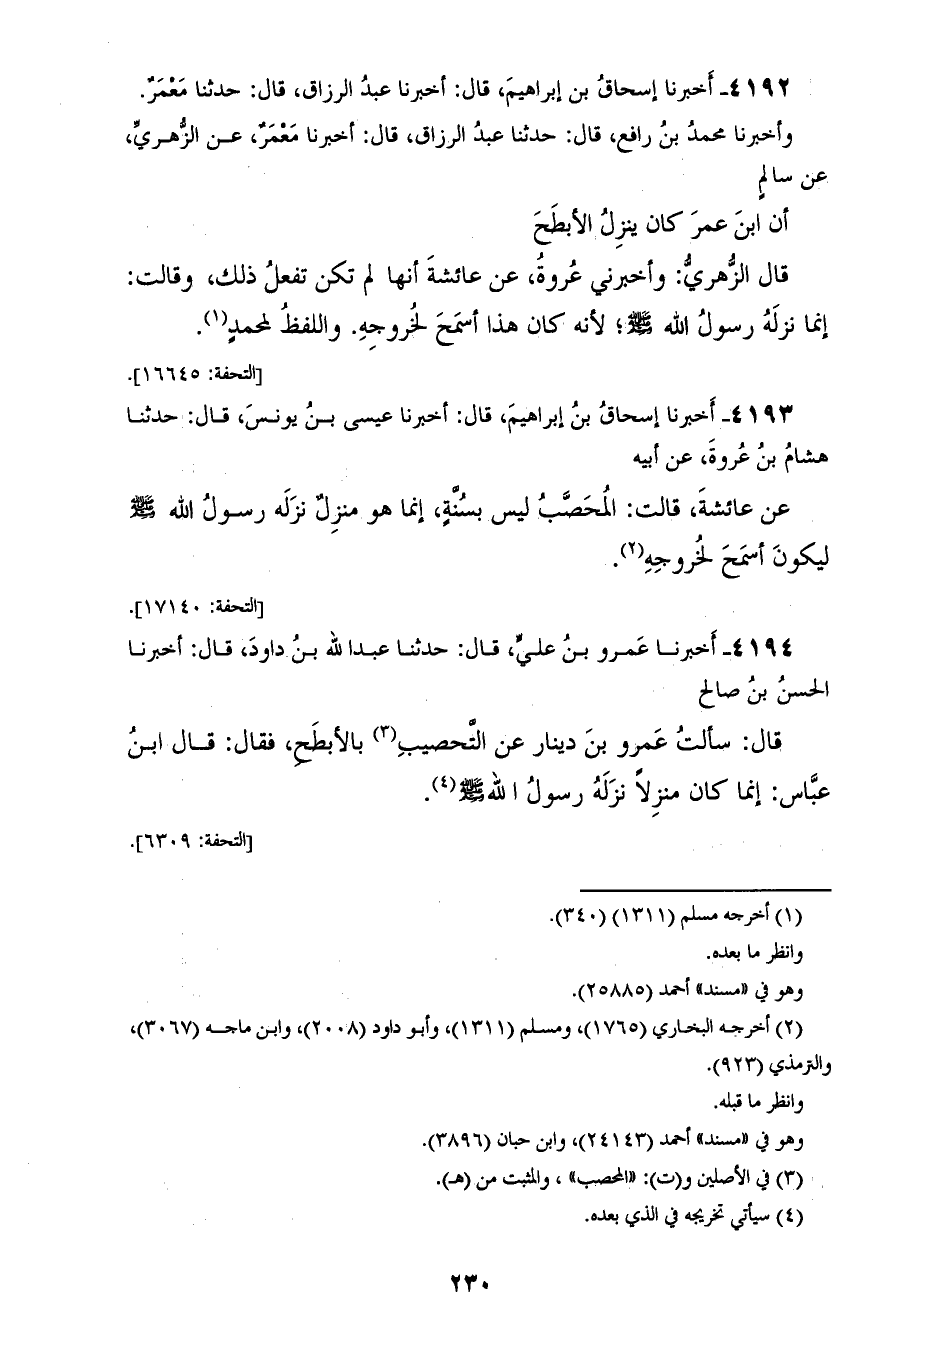 ٤١٩٢ـ أَخبرنا إسحاقُ بن إبراهيمَ، قال: أخبرنا عبدُ الرزاق، قال: حدثنا مَعْمَرٌ.
وأخبرنا محمدُ بنُ رافع، قال: حدثنا عبدُ الرزاق، قال: أخبرنا مَعْمَرٌ، عـن الزُّهـريِّ،
عن سالمٍ
أن ابنَ عمرَ كان ينزِلُ الأبطَحَ
قال الزُّهريُّ: وأخبرني عُروةُ، عن عائشةَ أنها لم تكن تفعلُ ذلك، وقالت:
إنما نزلَهُ رسولُ الله ﷺ؛ لأنه كان هذا أسمَحَ لخُروجِهِ. واللفظُ لمحمدٍ(١).
[التحفة: ١٦٦٤٥].
٤١٩٣ـ أَخبرنا إسحاقُ بنُ إبراهيمَ، قال: أخبرنا عيسى بـنُ يونـسَ، قـال: حدثنـا
هشامُ بنُ عُروةَ، عن أبيه
عن عائشةَ، قالت: المُحَصَّبُ ليس بسُنَّةٍ، إنما هو منزِلٌ نزلَه رسـولُ الله ﷺ
ليكونَ أسمَحَ لخُروجِهِ(٢).
[التحفة: ١٧١٤٠].
٤١٩٤ـ أَخبرنـا عَمـرو بـنُ عليٍّ، قـال: حدثنـا عبـدا لله بـنُ داودَ، قـال: أخبرنـا
الحسنُ بنُ صالح
قال: سألتُ عَمرو بنَ دينار عن التَّحصيبِ(٣) بالأبطَحِ، فقال: قـال ابـنُ
عبَّاس: إنما كان منزِلاً نزلَهُ رسولُ ا لله ﷺ(٤).
[التحفة: ٦٣٠٩].
(١) أخرجه مسلم (١٣١١) (٣٤٠).
وانظر ما بعده.
وهو في «مسند» أحمد (٢٥٨٨٥).
(٢) أخرجـه البخـاري (١٧٦٥)، ومسـلم (١٣١١)، وأبـو داود (٢٠٠٨)، وابـن ماجـه (٣٠٦٧)،
والترمذي (٩٢٣).
وانظر ما قبله.
وهو في «مسند» أحمد (٢٤١٤٣)، وابن حبان (٣٨٩٦).
(٣) في الأصلين و(ت): «المحصب» ، والمثبت من (هـ).
(٤) سيأتي تخريجه في الذي بعده.
٢٣٠